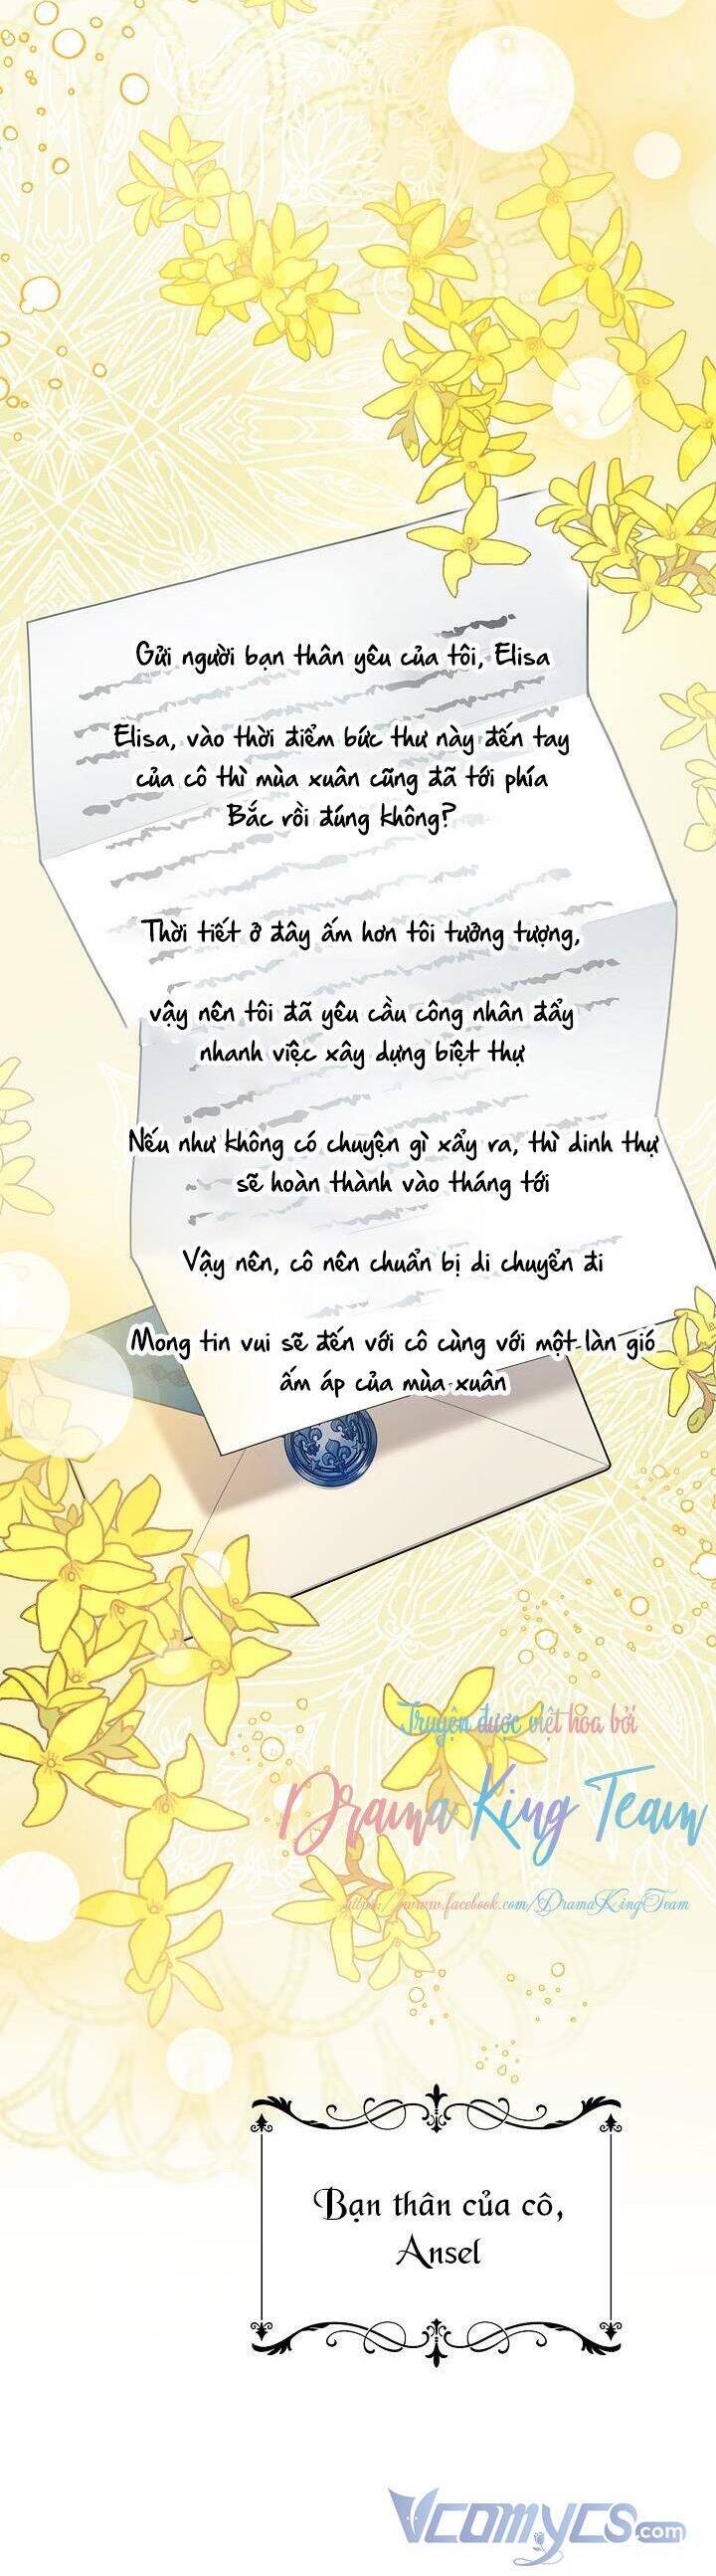 Gửi người bạn thân yêu của tôi, Elisa
Elisa, vào thời điểm bức thư này đến tay
của cô thì mùa xuân cũng đã tới phía
Bắc rồi đúng không?
Thời tiết ở đây ấm hơn tôi tưởng tượng,
vậy nên tôi đã yêu cầu công nhân đẩy
nhanh việc xây dựng biệt thự
Nếu như không có chuyện gì xẩy ra, thì dinh thự
sẽ hoàn thành vào tháng tới
Vậy nên, cô nên chuẩn bị di chuyển đi
Mong tin vui sẽ đến với cô cùng với một làn gió
ấm áp của mùa xuân
Truyện được việt hóa bởi
Drama King Team
https://www.facebook.com/DramaKingTeam
Bạn thân của cô,
Ansel
Vcomycs.com